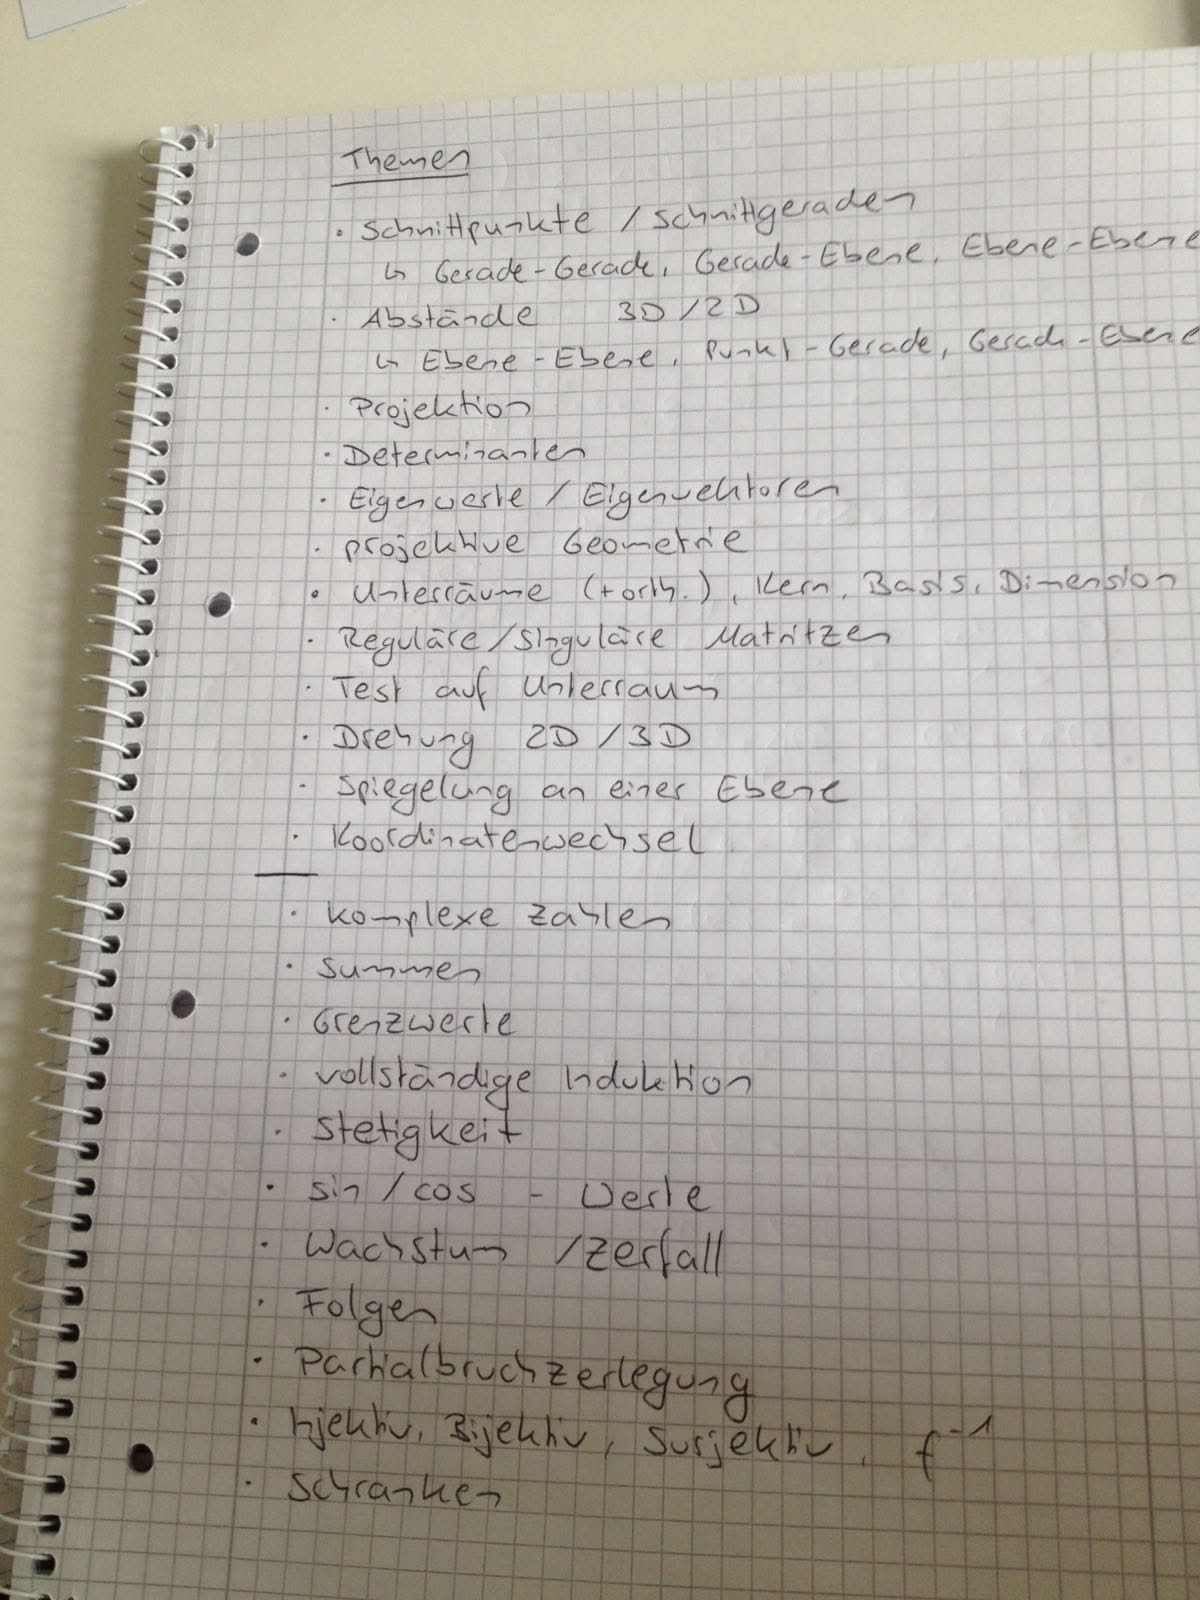 Themen
· Schnittpunkte / Schnittgeraden
↳ Gerade-Gerade, Gerade-Ebene, Ebene-Ebene
· Abstände 3D/2D
↳ Ebene-Ebene, Punkt-Gerade, Gerade-Ebene
· Projektion
· Determinanten
· Eigenwerte / Eigenvektoren
· projektive Geometrie
· Unterräume (+orth.), Kern, Basis, Dimension
· Reguläre/Singuläre Matritzen
· Test auf Unterraum
· Drehung 2D/3D
· Spiegelung an einer Ebene
· Koordinatenwechsel
· komplexe Zahlen
· Summen
· Grenzwerte
· vollständige Induktion
· Stetigkeit
· sin/cos - Werte
· Wachstum /Zerfall
· Folgen
· Partialbruchzerlegung
· Injektiv, Bijektiv, Surjektiv, f⁻¹
· Schranken